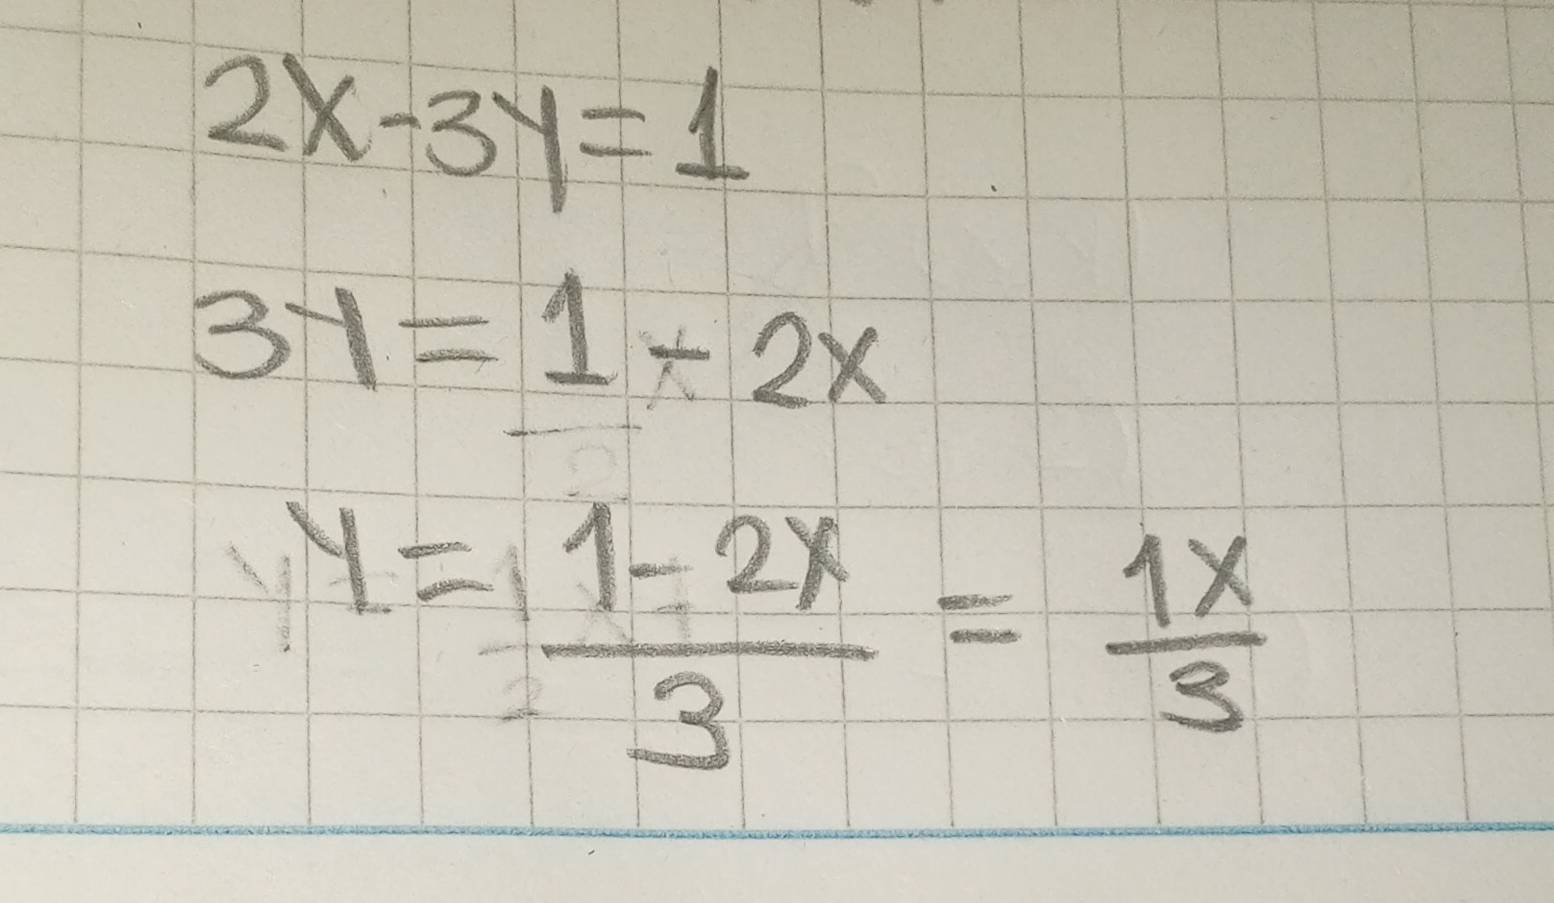 2x-3y=1
3y=1-2x
y=\frac{1-2x}{3}=\frac{1x}{3}